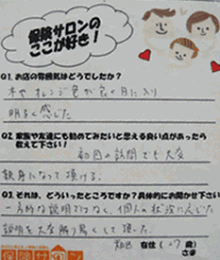 保険サロンの
ここが好き!
Q1. お店の雰囲気はどうでしたか?
木やオレンジ色が良く目に入り
明るく感じた
Q2. 家族や友達にも勧めてみたいと思える良い点があったら
教えて下さい!
初回の訪問でも大変
親身になって頂ける。
Q3. それは、どういったところですか?具体的にお聞かせ下さい
一方的な説明ではなく、個人の状況に応じた
説明を大変解り易くして頂いた。
保険サロン
在住 (27歳)